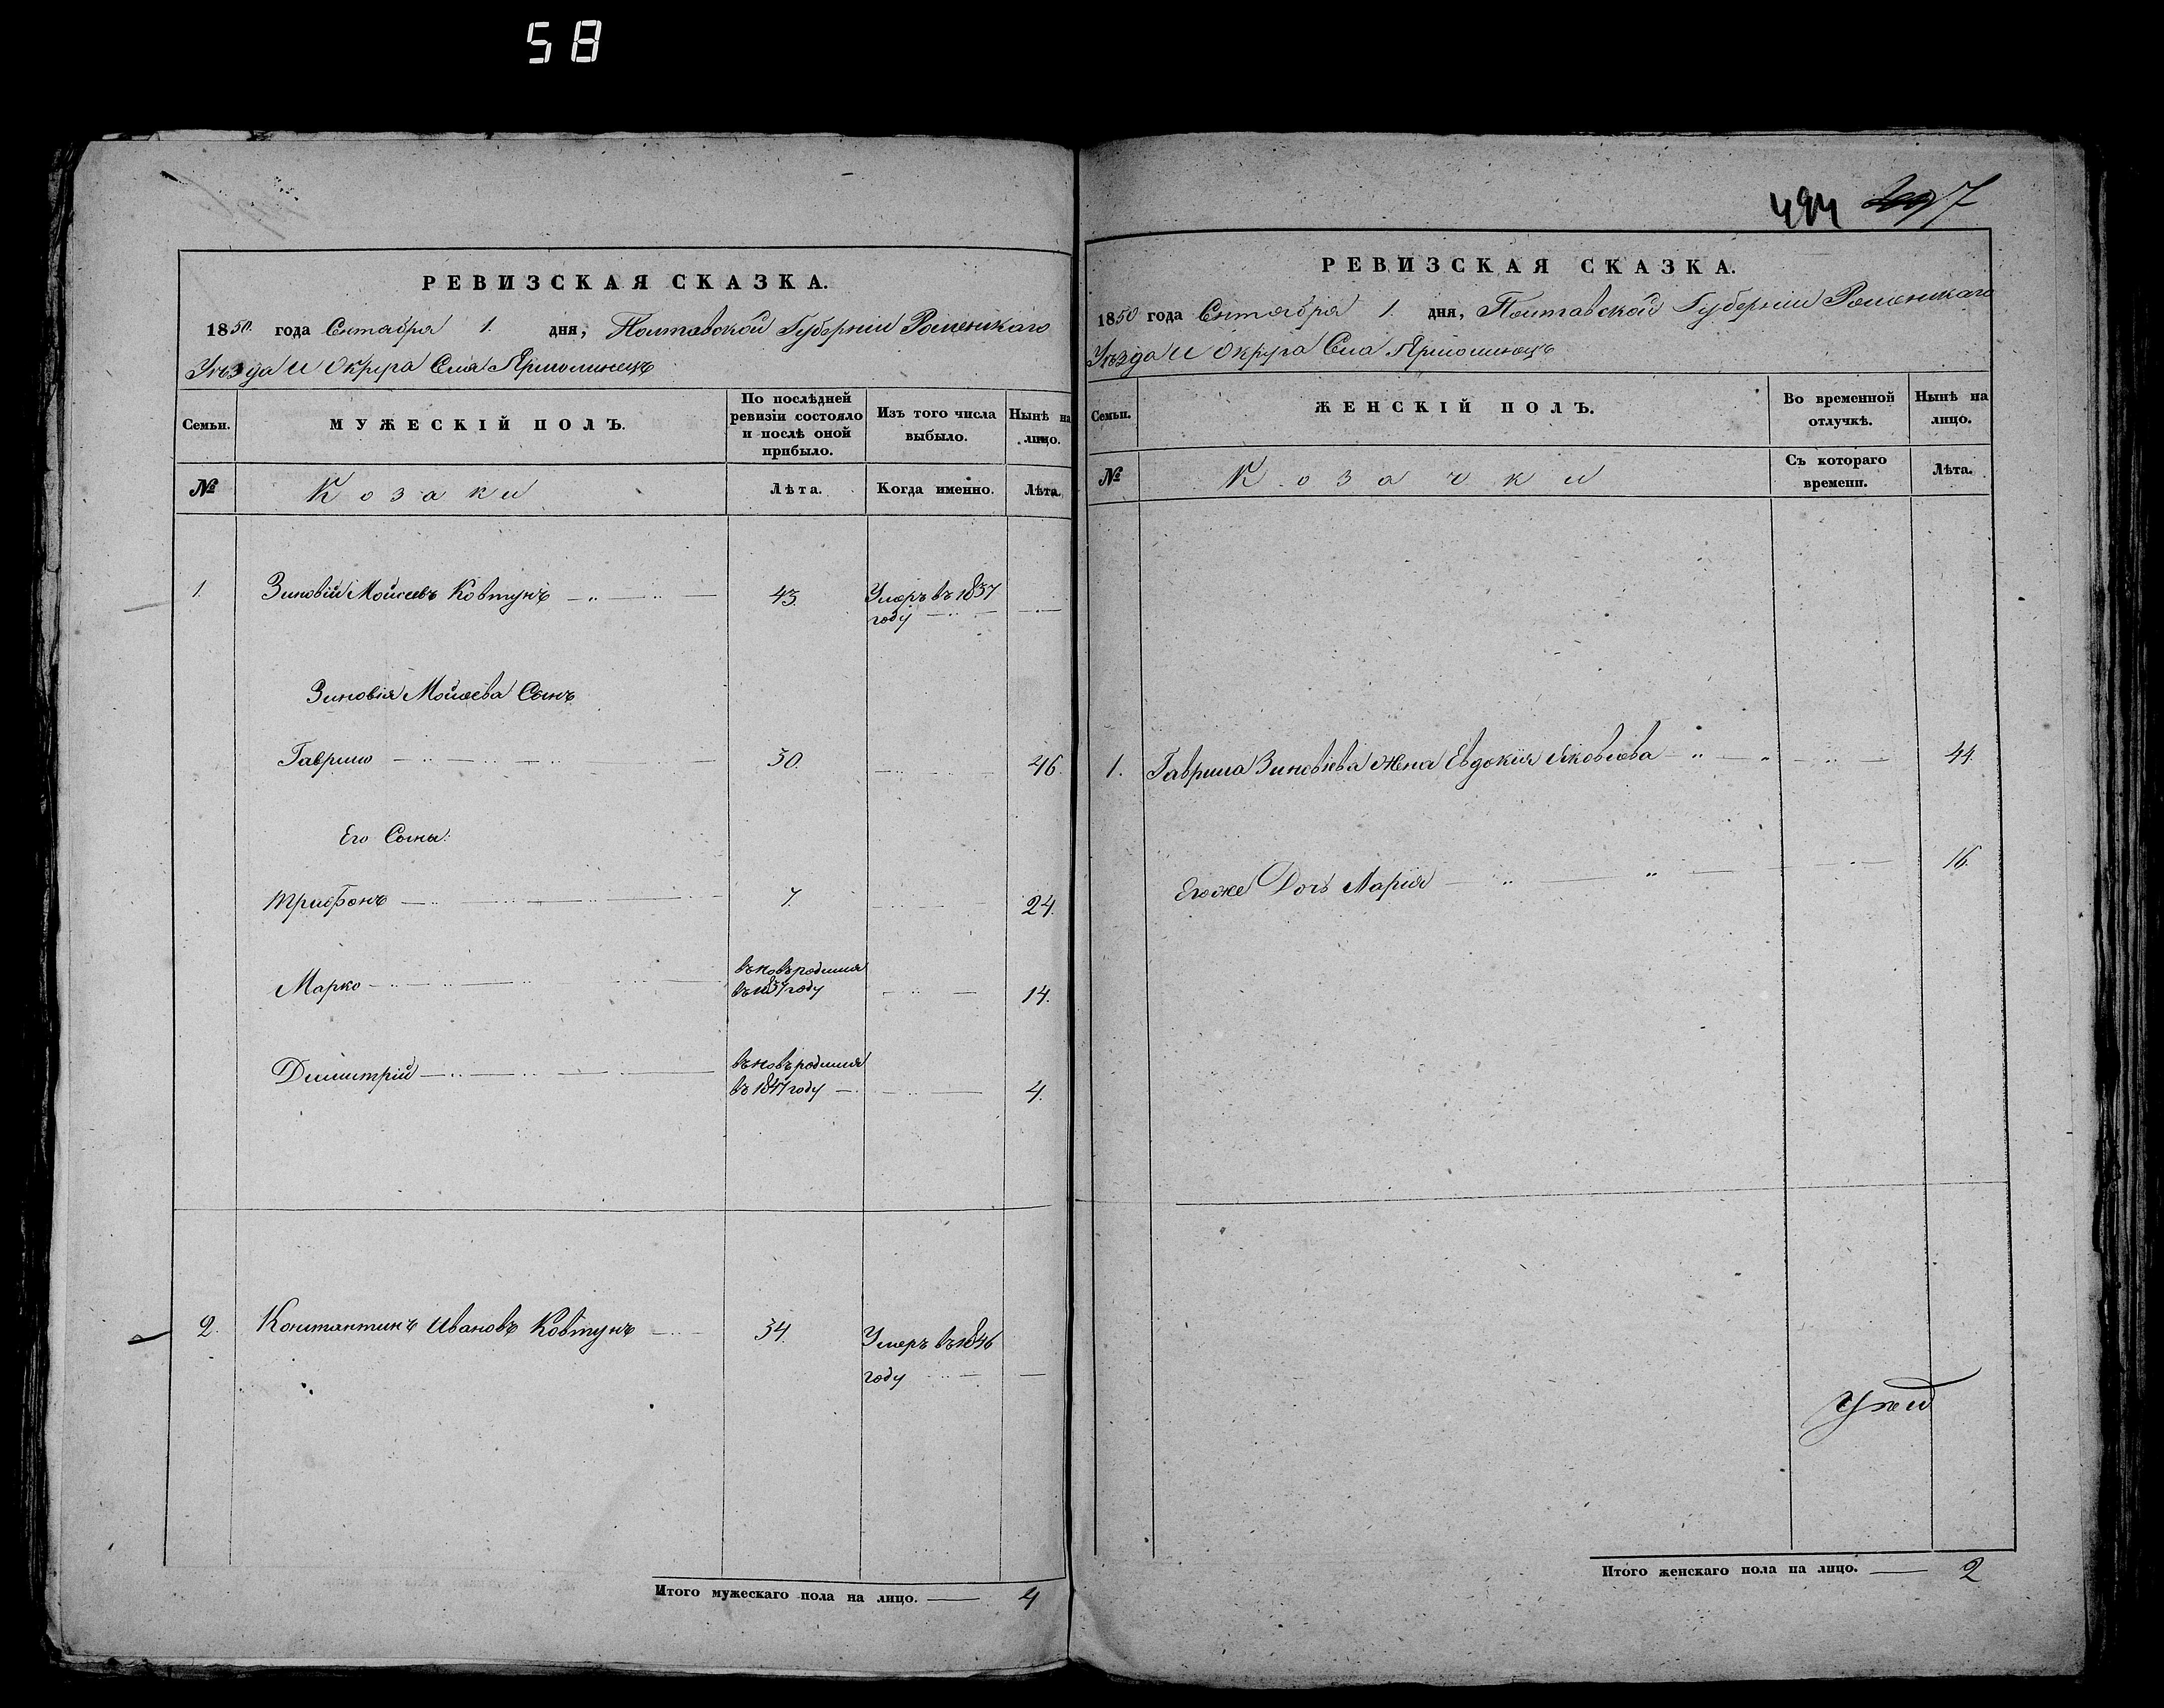 58
РЕВИЗСКАЯ СКАЗКА.
1850 года Сентября 1. дня, Полтавской Губернии Роменскаго
Уѣзда и Округа Села Ярмолинецъ
Семьи.
МУЖЕСКІЙ ПОЛЪ.
По послѣдней
ревизіи состояло
и послѣ оной
прибыло.
Изъ того числа
выбыло.
Нынѣ на
лицо.
№
Козаки
Лѣта.
Когда именно.
Лѣта.
1. Зиновій Мойсеевъ Ковтунъ 43. Умеръ въ 1837
году
Зиновія Мойсеева Сынъ
Гаврило 30. 46.
Его Сыны:
Трифонъ 7. 24.
Марко вновьродился
въ 1837 году 14.
Димитрій вновьродился
въ 1847 году 4.
2. Константинъ Ивановъ Ковтунъ 34. Умеръ въ 1846
году
Итого мужескаго пола на лицо. 4
494 7
РЕВИЗСКАЯ СКАЗКА.
1850 года Сентября 1. дня, Полтавской Губерніи Роменскаго
Уѣзда и Округа Села Ярмолинецъ
Семьи.
ЖЕНСКІЙ ПОЛЪ.
Во временной
отлучкѣ.
Нынѣ на
лицо.
№
Козачки
Съ котораго
времени.
Лѣта.
1. Гаврила Зиновіева жена Евдокия Яковлева 44.
Егоже Дочь Марія 16.
Итого женскаго пола на лицо. 2